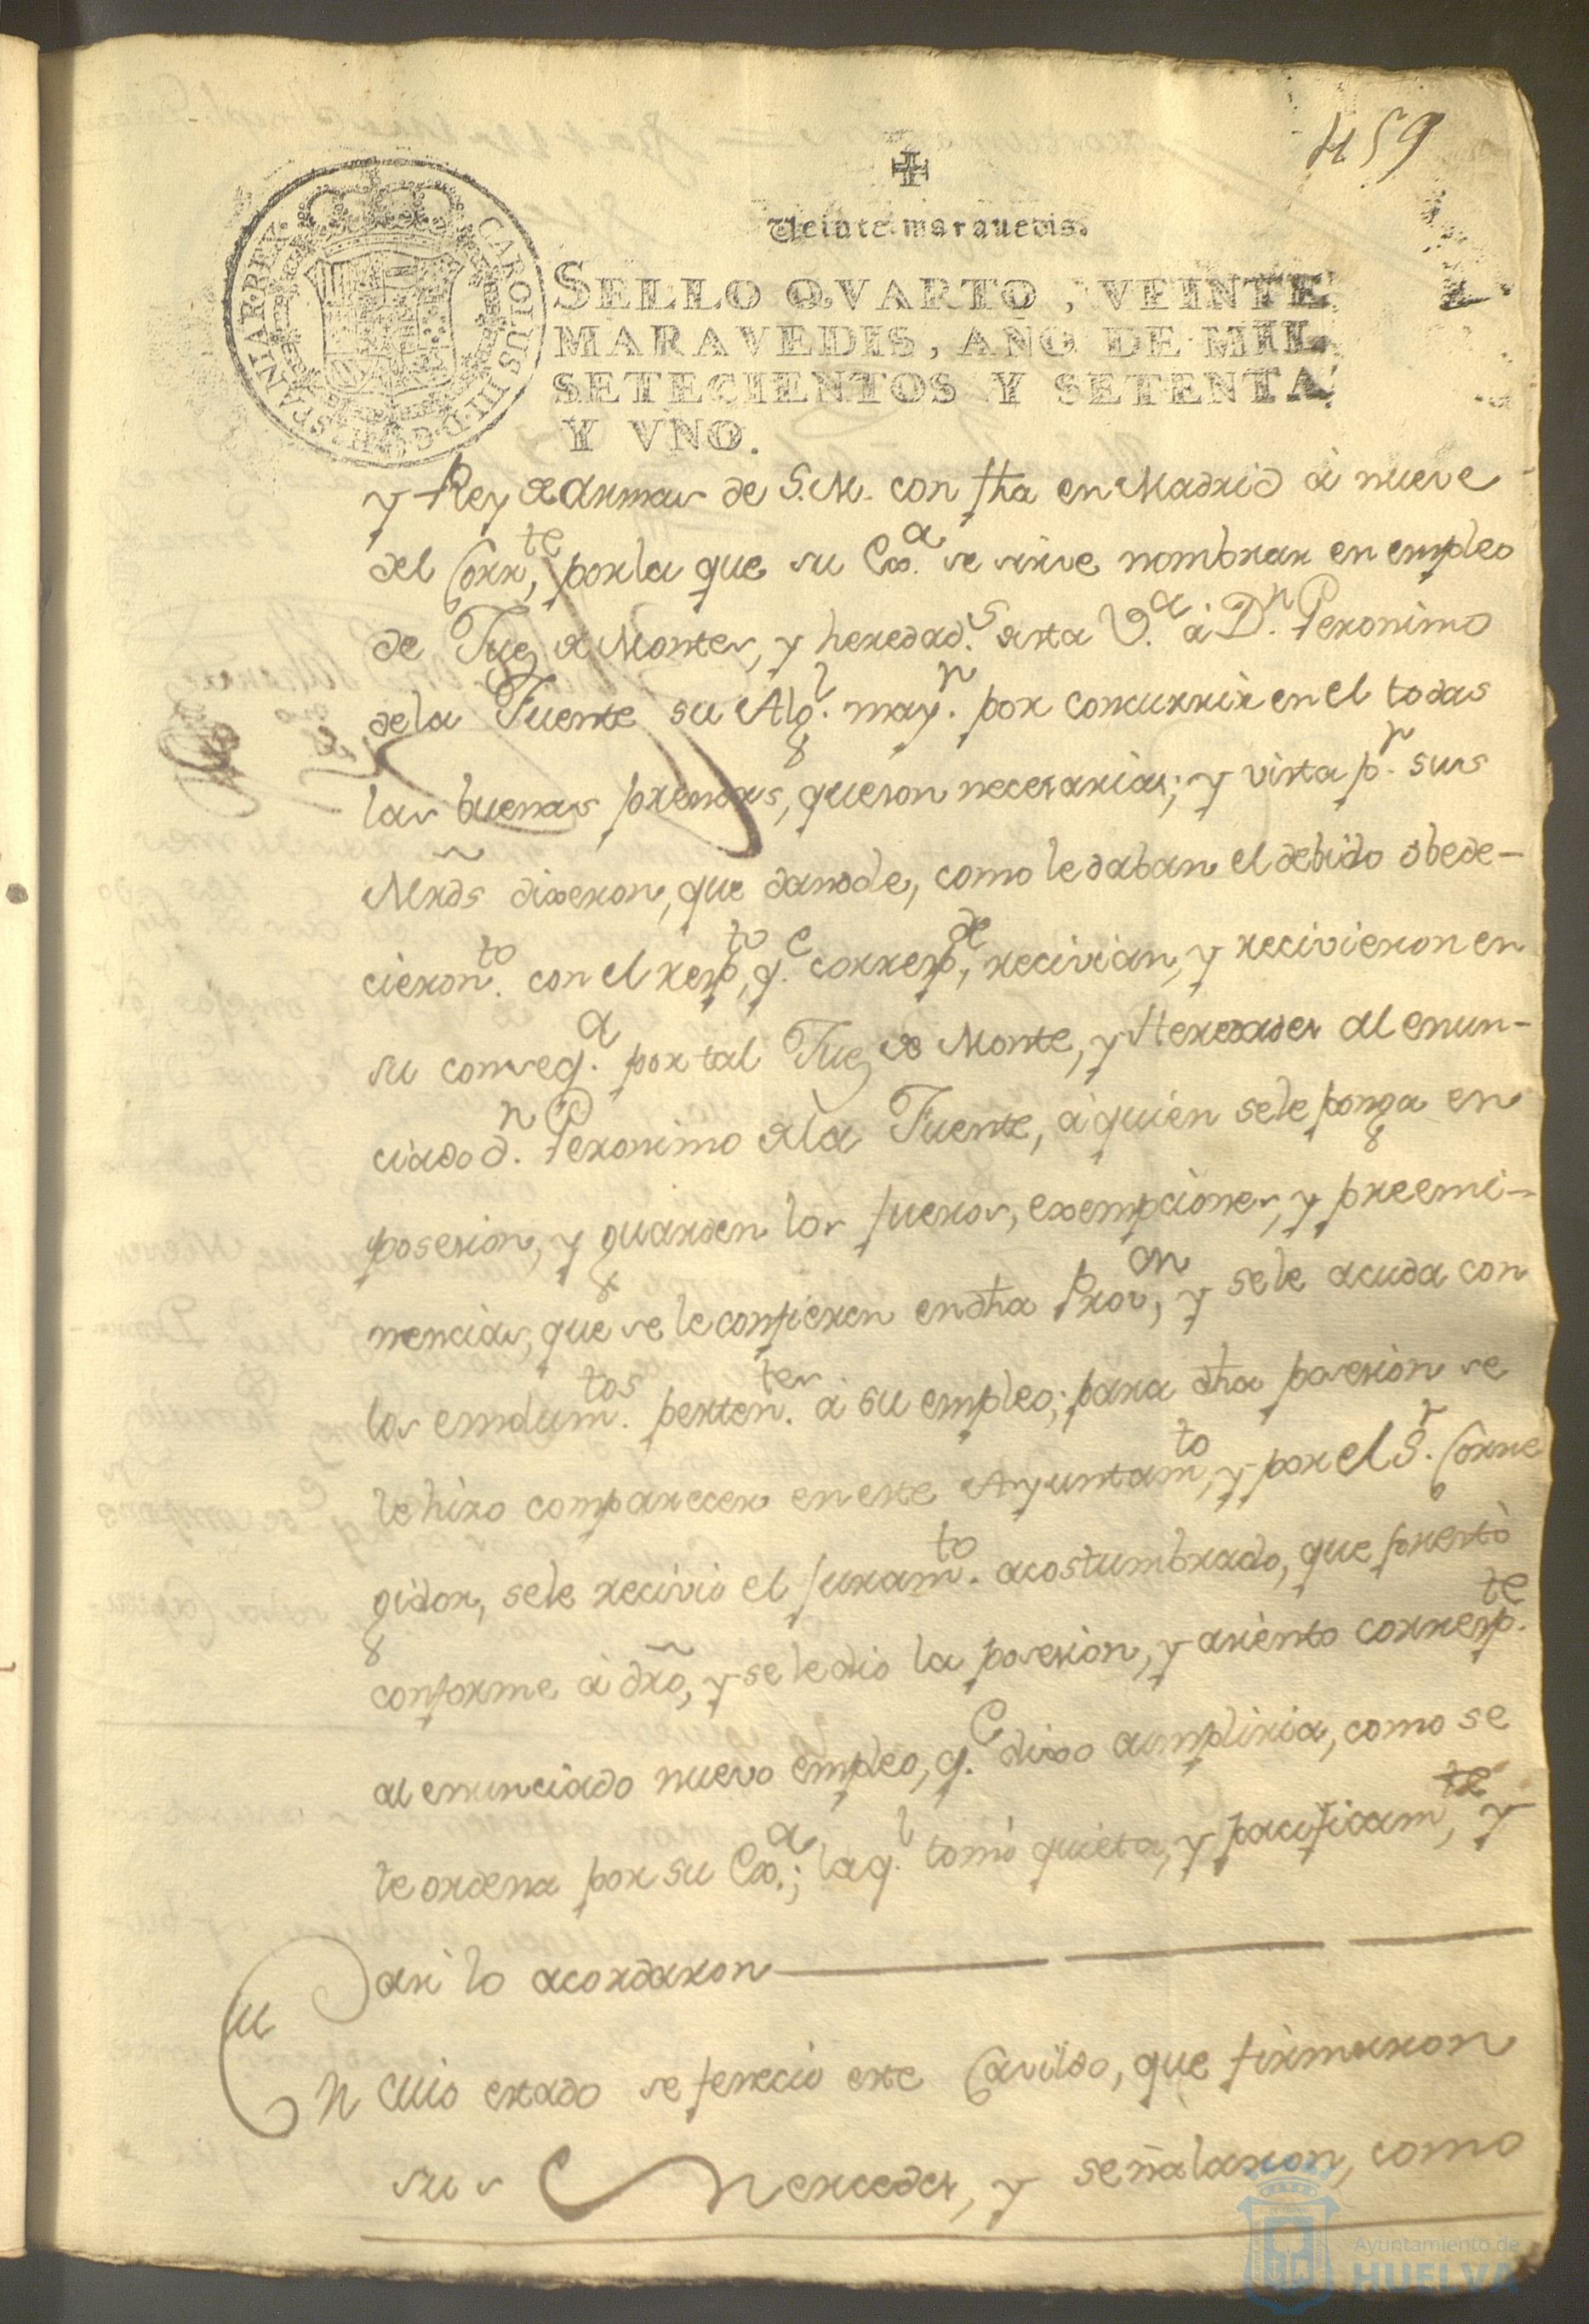 459
Veinte maravedis.
SELLO QVARTO, VEINTE
MARAVEDIS, AÑO DE MIL
SETECIENTOS Y SETENTA
Y VNO.
CAROLUS III D.G. HISPANIAR. REX
y Rey de Armas de S.M. con fha en Madrid à nueve
del Corrte, por la que su Exa. se sirve nombrar en empleo
de Juez de Montes, y heredads. de esta Va. à Dn. Geronimo
de la Fuente su Algl. mayr. por concurrir en el todas
las buenas prendas, que son necesarias; y vista pr. sus
Mrds dixeron, que dandole, como le daban el debido obede-
cieronto. con el respto, qe. correspde, recivian, y recivieron en
su conseqa. por tal Juez de Monte, y Heredades al enun-
ciado dn. Geronimo de la Fuente, à quien se le ponga en
posesion, y guarden los fueros, exempciones, y preemi-
nencias, que se le confieren en dha Provon, y se le acuda con
los emolumtos. pertentes. à su empleo; para dha posesion se
le hizo comparecer en este Ayuntamto, y por el Sr. Corre
gidor, se le recivio el juramto. acostumbrado, que prestò
conforme à dro, y se le dio la posesion, y asiento correspte.
al enunciado nuevo empleo, qe. dixo cumpliria, como se
le ordena por su Exa.; la ql. tomò quieta, y pacificamte, y
asi lo acordaron
En cuio estado se fenecio este Cavildo, que firmaron
sus Mercedes, y señalaron, como
Ayuntamiento de
HUELVA